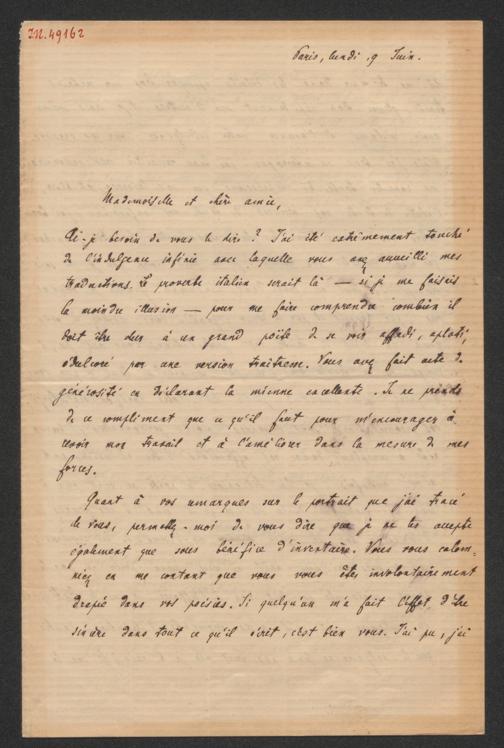 I.N. 49162
Paris, lundi, 9 Juin.
Mademoiselle et chère amie,
Ai-je besoin de vous le dire ? J'ai été extrêmement touché
de l'indulgence infinie avec laquelle vous avez accueilli mes
traductions. Le proverbe italien serait là — si je me faisais
la moindre illusion — pour me faire comprendre combien il
doit être dur à un grand poète de se voir affadi, aplati,
édulcoré par une version traîtresse. Vous avez fait acte de
générosité en déclarant la mienne excellente. Je ne prends
de ce compliment que ce qu'il faut pour m'encourager à
revoir mon travail et à l'améliorer dans la mesure de mes
forces.
Quant à vos remarques sur le portrait que j'ai tracé
de vous, permettez-moi de vous dire que je ne les accepte
également que sous bénéfice d'inventaire. Vous vous calom-
niez en me contant que vous vous êtes involontairement
drapée dans vos poésies. Si quelqu'un m'a fait l'effet d'être
sincère dans tout ce qu'il écrit, c'est bien vous. J'ai pu, j'ai